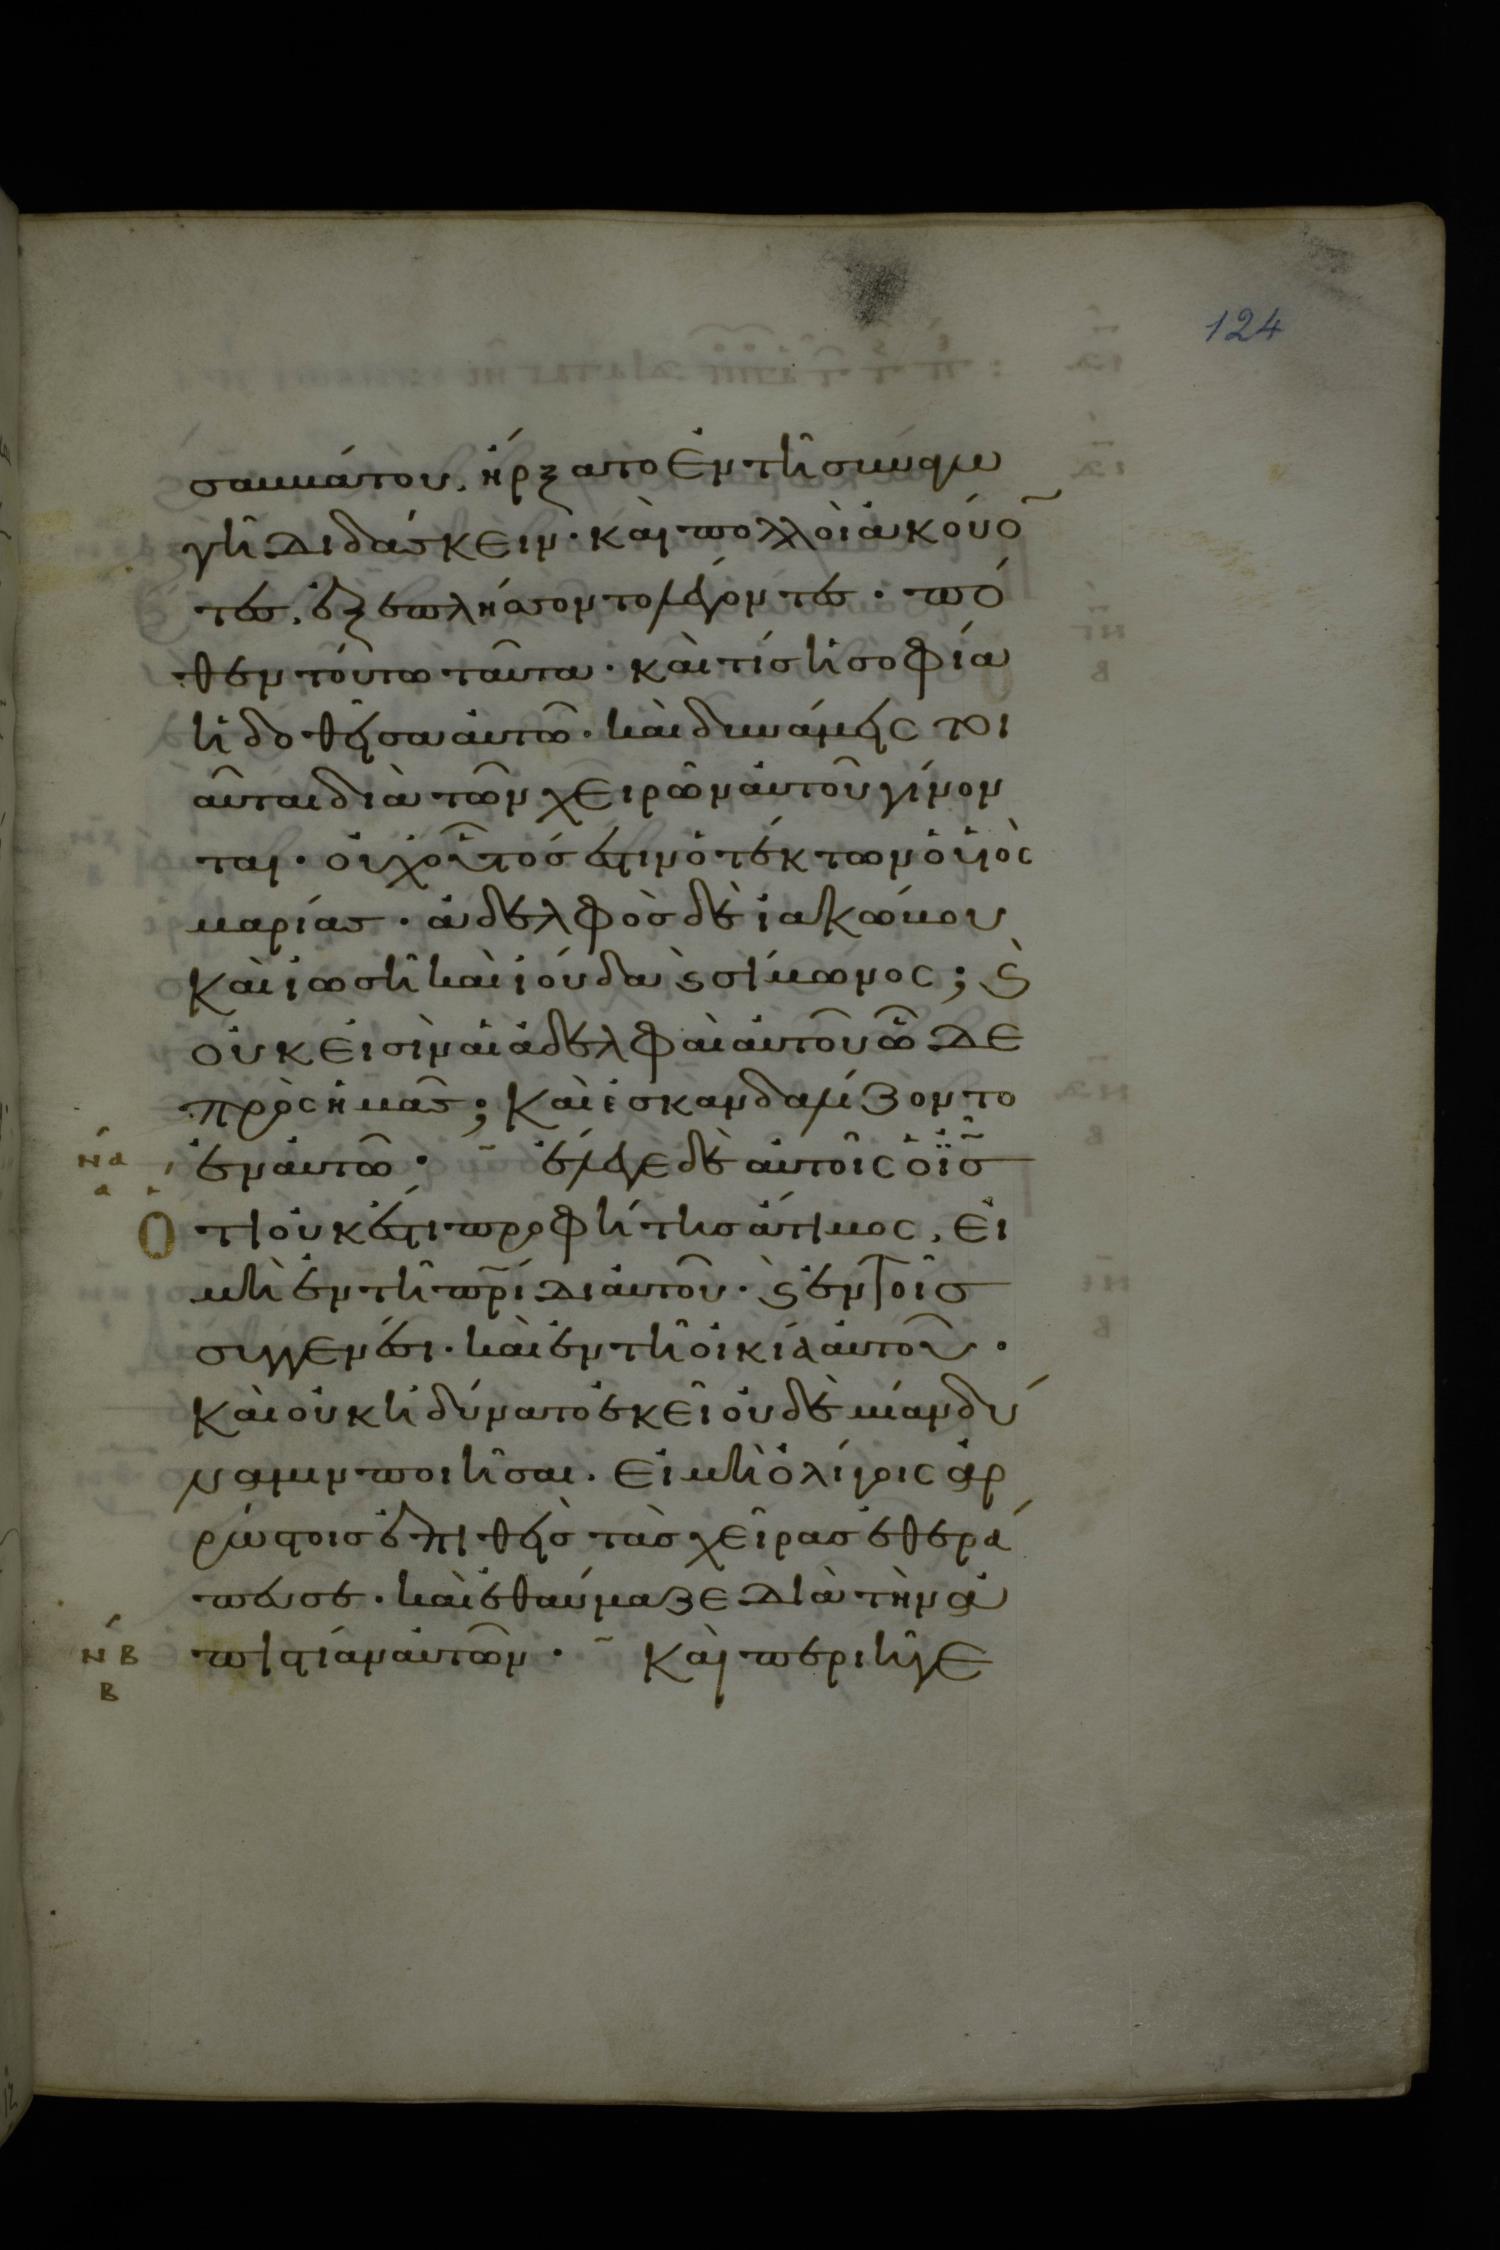 124
σαββάτου, ἤρξατο ἐν τῆ συναγω
γῆ διδάσκειν· καὶ πολλοὶ ἀκούο̅
τες, ἐξεπλήσσοντο λέγοντες· πό
θεν τούτω ταῦτα· καὶ τίς ἡ σοφία
ἡ δοθεῖσα αὐτῶ· καὶ δυνάμεις τοι
αῦται διὰ τῶν χειρῶν αὐτοῦ γίνον
ται· οὐχ οὗτός ἐστιν ὁ τέκτων ὁ υἱὸς
μαρίας· ἀδελφὸς δὲ ἰακώβου
καὶ ἰωσῆ καὶ ἰούδα ϗ σίμωνος; ϗ
οὐκ εἰσὶν αἱ ἀδελφαὶ αὐτοῦ ὧδε
πρὸς ἡμᾶς; καὶ ἐσκανδαλίζοντο
να
α
ἐν αὐτῶ· ἔλεγε δὲ αὐτοῖς ὁ ι̅ς̅
ὅτι οὐκ ἔστι προφήτης ἄτιμος, εἰ
μὴ ἐν τῆ πρ̅ίδι αὐτοῦ· ϗ ἐν τοῖς
συγγενέσι· καὶ ἐν τῆ οἰκία αὐτοῦ·
καὶ οὐκ ἠδύνατο ἐκεῖ οὐδὲ μίαν δύ
ναμιν ποιῆσαι. εἰ μὴ ὀλίγοις ἀρ
ρώστοις ἐπιθεὶς τὰς χεῖρας ἐθερά
πευσε· καὶ ἐθαύμαζε διὰ τὴν ἀ
νβ
β
πιστίαν αὐτῶν· καὶ περιῆγε